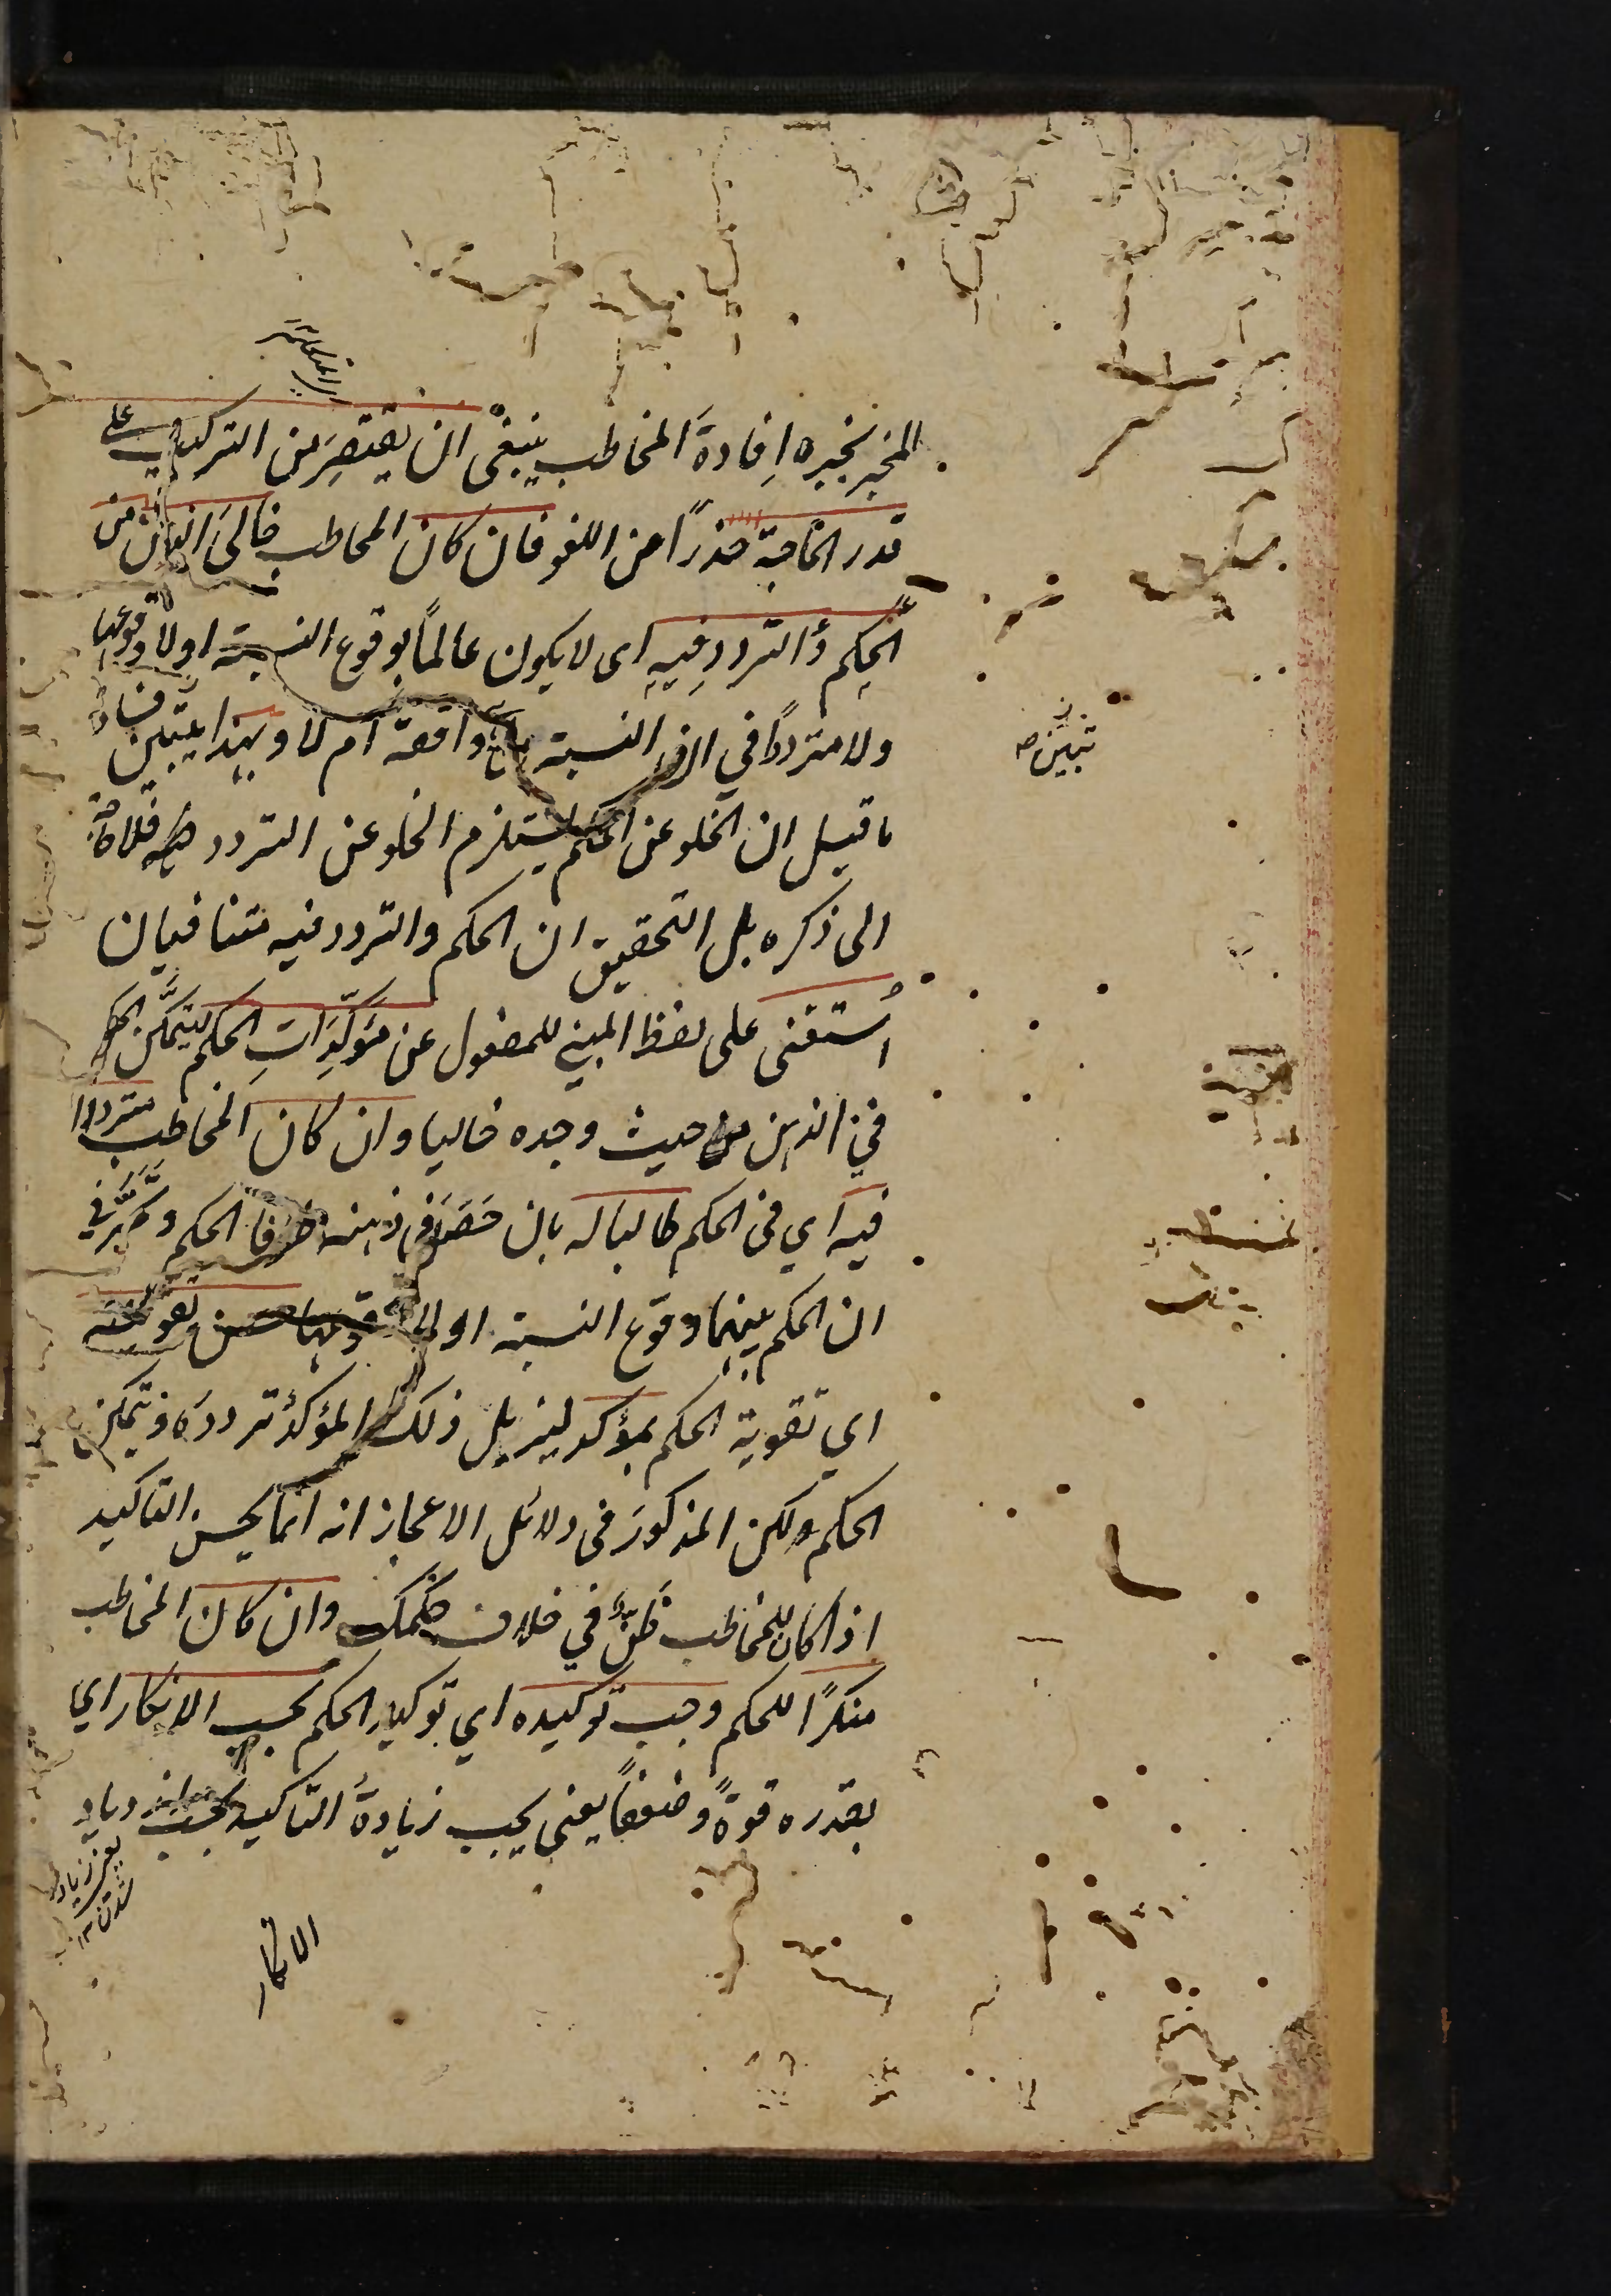 المخبر بخبره اِفادةَ المخاطب ينبغى ان يقتصِرَ من التركيب على
قدر الحاجة حذراً من اللغو فان كان المخاطب خالىَ الذهن من
الحكم والترددِ فيهِ اى لا يكون عالماً بوقوع النسبة اولا وقوعها
ولا مترددًا في ان النسبة هل هي واقعة ام لا وبهذا يتبين فساد
ما قيل ان الخلو عن الحكم يستلزم الخلو عن التردد فيه فلا حاجة
الى ذكره بل التحقيق ان الحكم والتردد فيه متنافيان
اُستغنى على لفظ المبنى للمفعول عن مؤكِّدَاتِ الحكم ليتمكّن الحكم
في الذهن من حيث وجده خاليا وان كان المخاطب مترددا
فيه اي فى الحكم طالبا له بان حَضَرَ فى ذهنه طرفا الحكم وتحيَّر في
ان الحكم بينهما وقوع النسبة اولا وقوعها حسن تقويته
اي تقوية الحكم بمؤكد ليزيل ذلك المؤكدُ تردده ويتمكن
الحكم ولكن المذكورَ فى دلائل الاعجاز انه انما يحسن التاكيد
اذا كان للمخاطب ظنٌّ في خلاف حكمك وان كان المخاطب
منكرًا للحكم وجب توكيده اي توكيد الحكم بحسب الانكار اي
بقدره قوةً وضعفاً يعنى يجب زيادةُ التاكيد بحسب ازدياد
الانكار